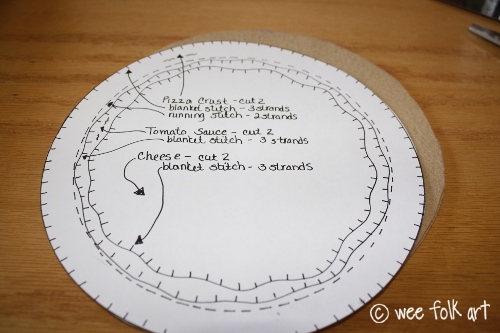 Pizza Crust - cut 2
blanket stitch - 3 strands
running stitch - 2 strands
Tomato Sauce - cut 2
blanket stitch - 3 strands
Cheese - cut 2
blanket stitch - 3 strands
© wee folk art